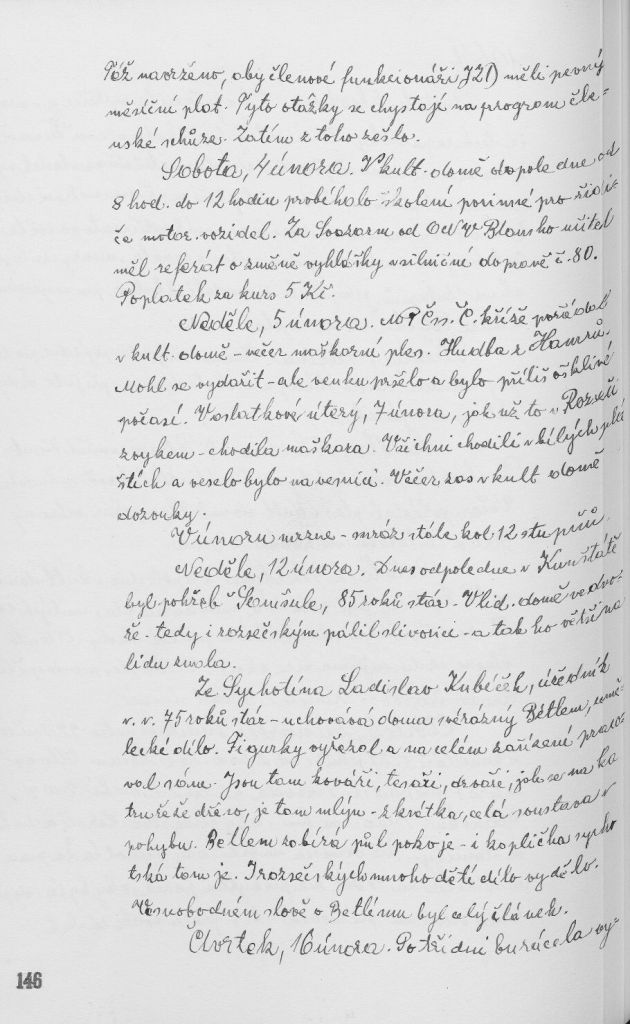 Též navrženo, aby členové funkcionáři JZD měli pevný
měsíční plat. Tyto otázky se chystají na program čle-
nské schůze. Zatím z toho sešlo.
Sobota, 4 února. V kult. domě dopoledne od
8 hod. do 12 hodin probíhalo školení povinné pro řidi-
če motor. vozidel. Za Svazarm od ONV Blansko učitel
měl referát o změně vyhlášky v silniční dopravě č. 80.
Poplatek za kurs 5 Kč.
Neděle, 5 února. MO Čs. Č. kříže pořádal
v kult. domě - večer maškarní ples. Hudba z Hamrů.
Mohl se vydařit - ale venku pršelo a bylo příliš ošklivé
počasí. V ostatkové úterý, 7 února, jak už to v Rozseči
zvykem - chodila maškara. Všichni chodili v bílých plá
štích a veselo bylo na vesnici. Večer zas v kult domě
dozvuky.
V únoru mrzne - mráz stále kol 12 stupňů.
Neděle, 12 února. Dnes odpoledne v Kunštátě
byl pohřeb 85 roků stár - V lid. domě ve dvo-
ře - tedy i rozsečským pálil slivovici - a tak ho většina
lidu znala.
Ze Sychotína Ladislav Kubíček, úředník
v. v. 75 roků stár - uchovává doma svérázný Betlem, umě-
lecké dílo. Figurky vyřezal a na celém zařízení praco-
val sám. Jsou tam kováři, tesaři, drváři, jak se na ka
tru řeže dřevo, je tam mlýn - zkrátka, celá soustava v
pohybu. Betlem zabírá půl pokoje - i kaplička sycho
tská tam je. I rozsečských mnoho dětí dílo vydělo.
Ve Svobodném slově o Betlému byl celý článek.
Čtvrtek, 16 února. Po třídní burácela vy-
146